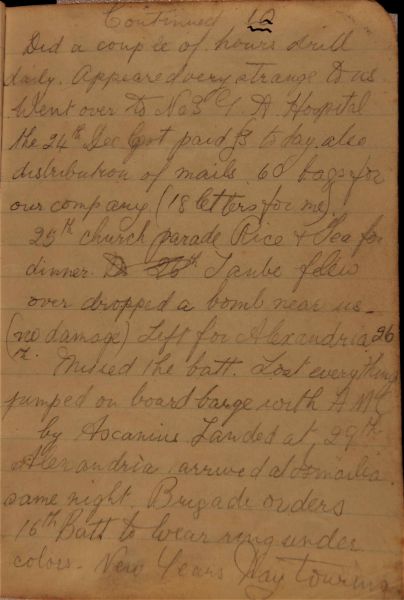 Continued 12
Did a couple of hours drill
daily. Appeared very strange to us
Went over to No 3 G A Hospital
the 24th Dec Got paid £3 today also
distribution of mails 60 bags for
our company. (18 letters for me)
25th church parade Rice & Tea for
dinner. 26th Taube flew
over dropped a bomb near us.
(no damage) Left for Alexandria 26
th. Missed the batt. Lost everything
jumped on board barge with AMC
by Ascanius Landed at, 29th
Alexandria arrived at Ismailia
same night Brigade orders
16th Batt to wear ring under
colors. New Years Day touring